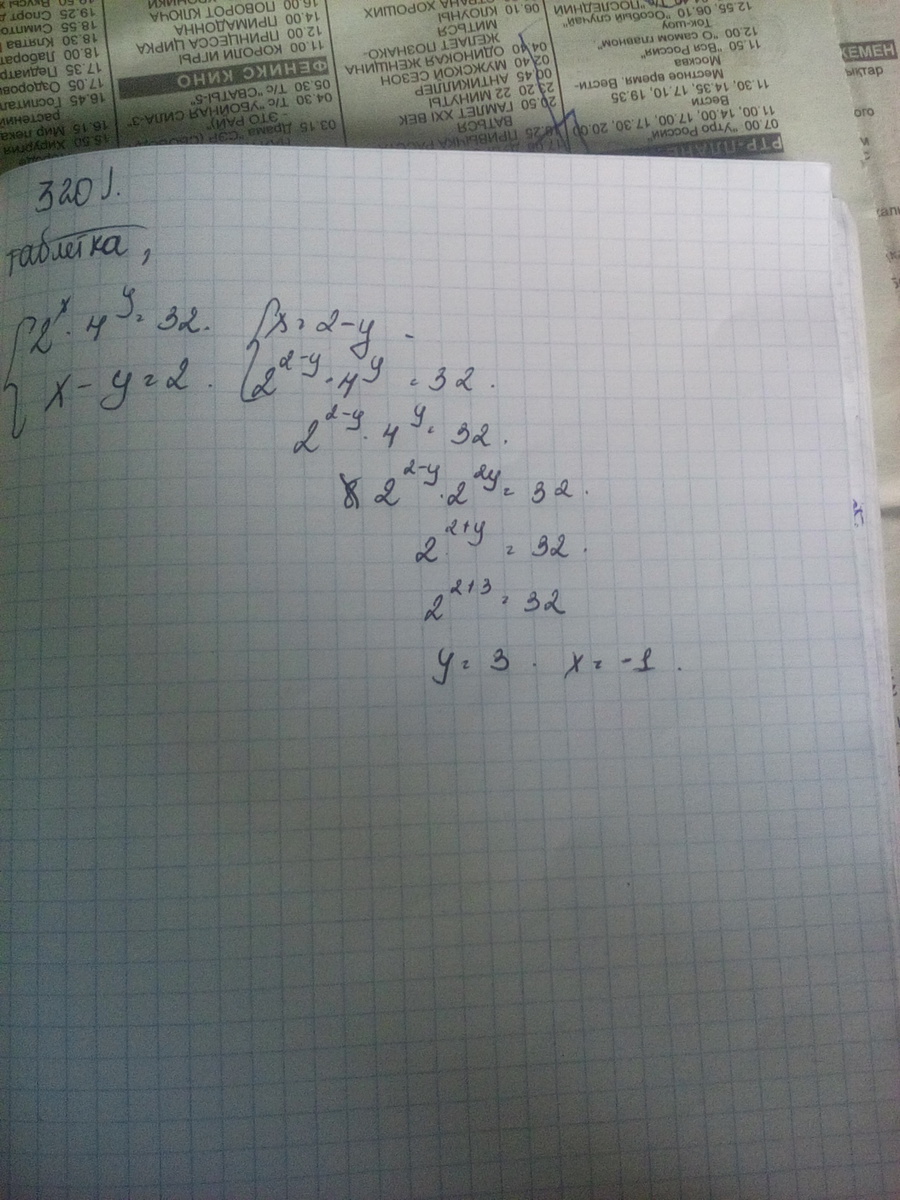 320 J.
таблетка,
{2^x · 4^y = 32.
x - y = 2.
{x = 2-y
2^{2-y} · 4^y = 32.
2^{2-y} · 4^y = 32.
2^{2-y} · 2^{2y} = 32.
2^{2+y} = 32.
2^{2+3} = 32
y = 3. x = -1.
РТР-ПЛАНЕ
07.00 "Утро России"
11.00, 14.00, 17.00, 17.30, 20.00
Вести
11.30, 14.35, 17.10, 19.35
Местное время. Вести-
Москва
11.50 "Вся Россия"
12.00 "О самом главном".
Ток-шоу
12.55, 06.10 "Особый случай".
"ПОСЛЕДНИЙ
ВАТЬСЯ
20.50 ГАМЛЕТ XXI ВЕК
23.20 22 МИНУТЫ
00.45 АНТИКИЛЛЕР
02.40 МУЖСКОЙ СЕЗОН
04.40 ОДИНОКАЯ ЖЕНЩИНА
ЖЕЛАЕТ ПОЗНАКО-
МИТЬСЯ
06.10
ХОРОШИХ
03.15 Драма
- ЭТО РАЙ)"
04.30 Т/с "УБОЙНАЯ СИЛА-3"
05.30 Т/с "СВАТЫ-5"
ФЕНИКС КИНО
11.00 КОРОЛИ ИГРЫ
12.00 ПРИНЦЕССА ЦИРКА
14.00 ПРИМАДОННА
16.00 ПОВОРОТ КЛЮЧА
15.50 Хирургия
16.15 Мир
растений
16.45
17.05
17.35
18.00
18.30 Клятва
18.55
19.25 Спорт
КЕМЕН
ого
и